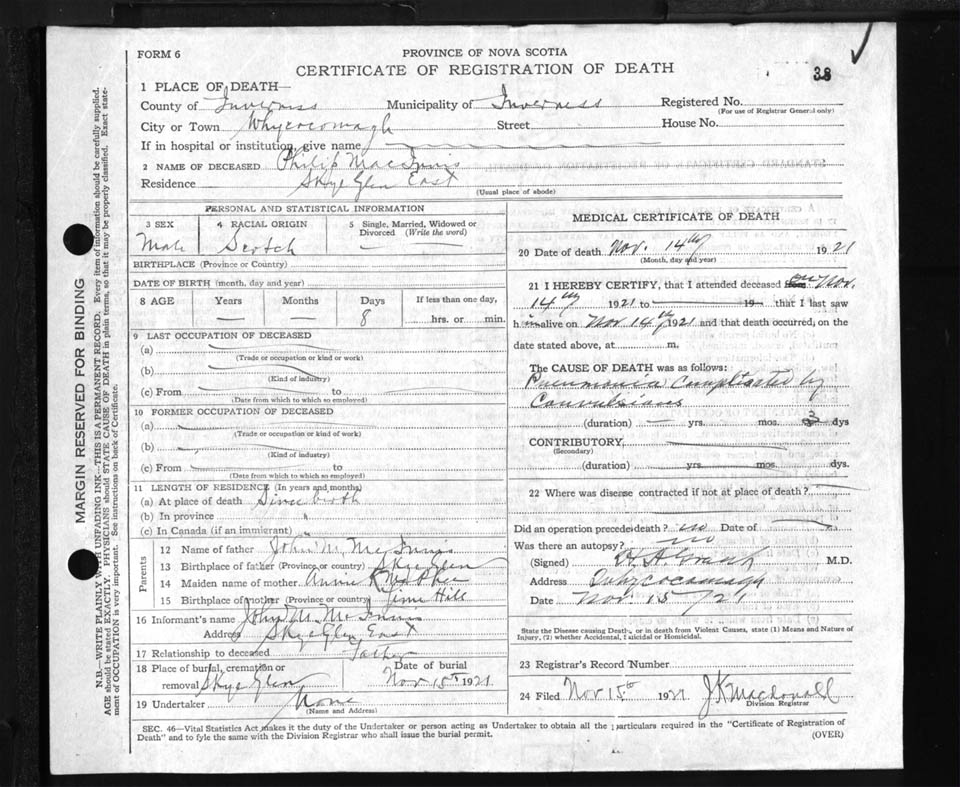 FORM 6
PROVINCE OF NOVA SCOTIA
38
CERTIFICATE OF REGISTRATION OF DEATH
1 PLACE OF DEATH—
County of Inverness Municipality of Inverness Registered No.
(For use of Registrar General only)
City or Town Whycocomagh Street House No.
If in hospital or institution, give name
2 NAME OF DECEASED Philip MacInnis
Residence Skye Glen East
(Usual place of abode)
PERSONAL AND STATISTICAL INFORMATION
3 SEX 4 RACIAL ORIGIN 5 Single, Married, Widowed or Divorced (Write the word)
Male Scotch —
BIRTHPLACE (Province or Country)
DATE OF BIRTH (month, day and year)
8 AGE Years Months Days If less than one day,
— — 8 hrs. or min.
9 LAST OCCUPATION OF DECEASED
(a)
(Trade or occupation or kind of work)
(b)
(Kind of industry)
(c) From to
(Date from which to which so employed)
10 FORMER OCCUPATION OF DECEASED
(a)
(Trade or occupation or kind of work)
(b)
(Kind of industry)
(c) From to
(Date from which to which so employed)
11 LENGTH OF RESIDENCE (In years and months)
(a) At place of death Since birth
(b) In province "
(c) In Canada (if an immigrant)
Parents
12 Name of father John M. McInnis
13 Birthplace of father (Province or country) Skye Glen
14 Maiden name of mother Annie
15 Birthplace of mother (Province or country) Lime Hill
16 Informant's name John M. McInnis
Address Skye Glen East
17 Relationship to deceased Father
18 Place of burial, cremation or removal Skye Glen Date of burial Nov 15th 1921
19 Undertaker None
(Name and Address)
MEDICAL CERTIFICATE OF DEATH
20 Date of death Nov. 14th 1921
(Month, day and year)
21 I HEREBY CERTIFY, that I attended deceased on Nov.
14th 1921 to 19 that I last saw
him alive on Nov 14th 1921 and that death occurred, on the
date stated above, at m.
The CAUSE OF DEATH was as follows:
Pneumonia Complicated by
Convulsions
(duration) — yrs. mos. 3 dys
CONTRIBUTORY
(Secondary)
(duration) yrs. mos. dys.
22 Where was disease contracted if not at place of death?
Did an operation precede death? no Date of —
Was there an autopsy? no
(Signed) M.D.
Address Whycocomagh
Date Nov. 15 /21
State the Disease causing Death, or in death from Violent Causes, state (1) Means and Nature of
Injury, (2) whether Accidental, Suicidal or Homicidal.
23 Registrar's Record Number
24 Filed Nov 15th 1921 J K Macdonald
Division Registrar
SEC. 46—Vital Statistics Act makes it the duty of the Undertaker or person acting as Undertaker to obtain all the particulars required in the "Certificate of Registration of
Death" and to fyle the same with the Division Registrar who shall issue the burial permit.
(OVER)
MARGIN RESERVED FOR BINDING
N.B.—WRITE PLAINLY WITH UNFADING INK—THIS IS A PERMANENT RECORD. Every item of information should be carefully supplied.
AGE should be stated EXACTLY. PHYSICIANS should STATE CAUSE OF DEATH in plain terms, so that it may be properly classified. Exact state-
ment of OCCUPATION is very important. See instructions on back of Certificate.